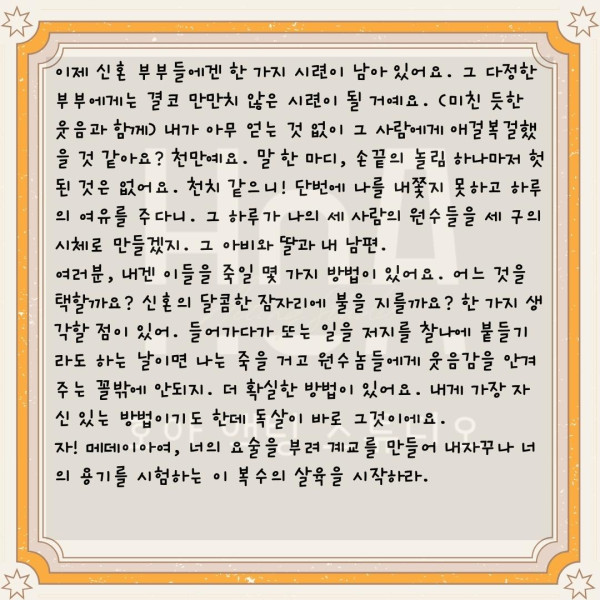 이제 신혼 부부들에겐 한 가지 시련이 남아 있어요. 그 다정한
부부에게는 결코 만만치 않은 시련이 될 거예요. (미친 듯한
웃음과 함께) 내가 아무 얻는 것 없이 그 사람에게 애걸복걸했
을 것 같아요? 천만예요. 말 한 마디, 손끝의 놀림 하나마저 헛
된 것은 없어요. 천치 같으니! 단번에 나를 내쫓지 못하고 하루
의 여유를 주다니. 그 하루가 나의 세 사람의 원수들을 세 구의
시체로 만들겠지. 그 아비와 딸과 내 남편.
여러분, 내겐 이들을 죽일 몇 가지 방법이 있어요. 어느 것을
택할까요? 신혼의 달콤한 잠자리에 불을 지를까요? 한 가지 생
각할 점이 있어. 들어가다가 또는 일을 저지를 찰나에 붙들기
라도 하는 날이면 나는 죽을 거고 원수놈들에게 웃음감을 안겨
주는 꼴밖에 안되지. 더 확실한 방법이 있어요. 내게 가장 자
신 있는 방법이기도 한데 독살이 바로 그것이에요.
자! 메데이아여, 너의 요술을 부려 계교를 만들어 내자꾸나 너
의 용기를 시험하는 이 복수의 살육을 시작하라.
HoA
호아 액팅 스튜디오